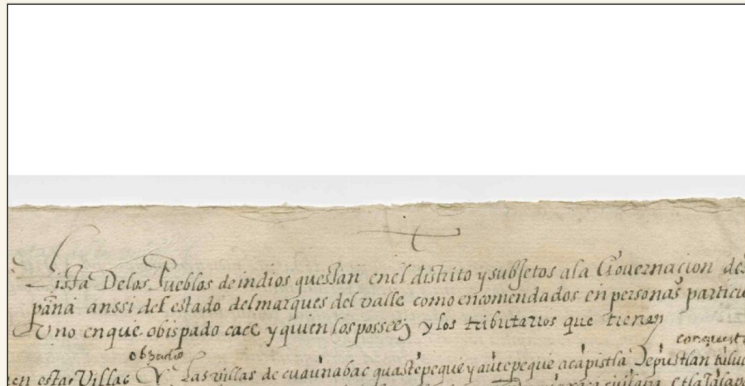 Lista De los Pueblos de indios questan en el distrito y subjetos a la Governacion de
pana anssi del estado del marques del valle como encomendados en personas particu
Uno en que obispado cae y quien los possee y los tributarios que tienen
obpado
en estas Villas Las villas de cuaunabac guastepeque yautepeque acapistla Depustlan